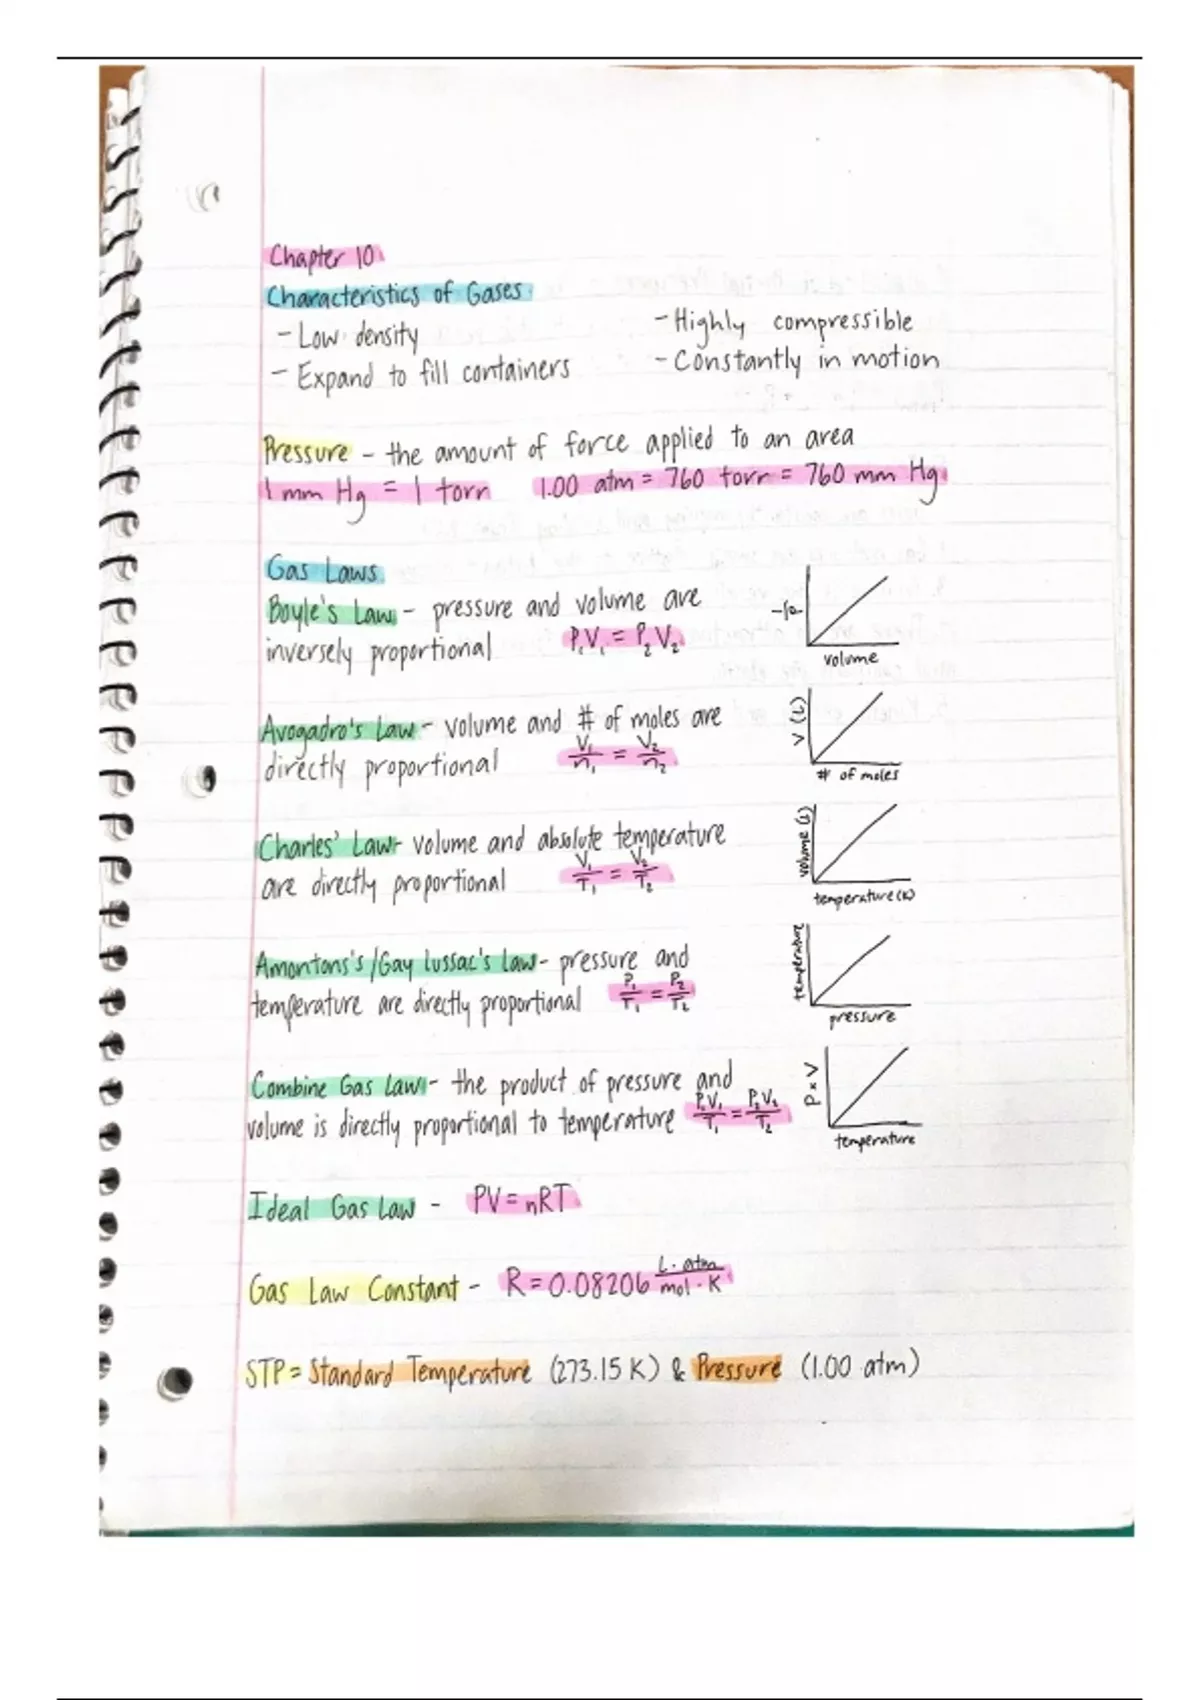 Chapter 10
Characteristics of Gases
- Low density
- Highly compressible
- Expand to fill containers
- Constantly in motion
Pressure - the amount of force applied to an area
1 mm Hg = 1 torr 1.00 atm = 760 torr = 760 mm Hg
Gas Laws
Boyle's Law - pressure and volume are
inversely proportional P₁V₁ = P₂V₂
1/P
volume
Avogadro's Law - volume and # of moles are
directly proportional V₁/n₁ = V₂/n₂
V (L)
# of moles
Charles' Law - volume and absolute temperature
are directly proportional V₁/T₁ = V₂/T₂
volume (L)
temperature (K)
Amontons's/Gay Lussac's Law - pressure and
temperature are directly proportional P₁/T₁ = P₂/T₂
temperature
pressure
Combine Gas Law - the product of pressure and
volume is directly proportional to temperature P₁V₁/T₁ = P₂V₂/T₂
P × V
temperature
Ideal Gas Law - PV = nRT
Gas Law Constant - R = 0.08206 L · atm / mol · K
STP = Standard Temperature (273.15 K) & Pressure (1.00 atm)